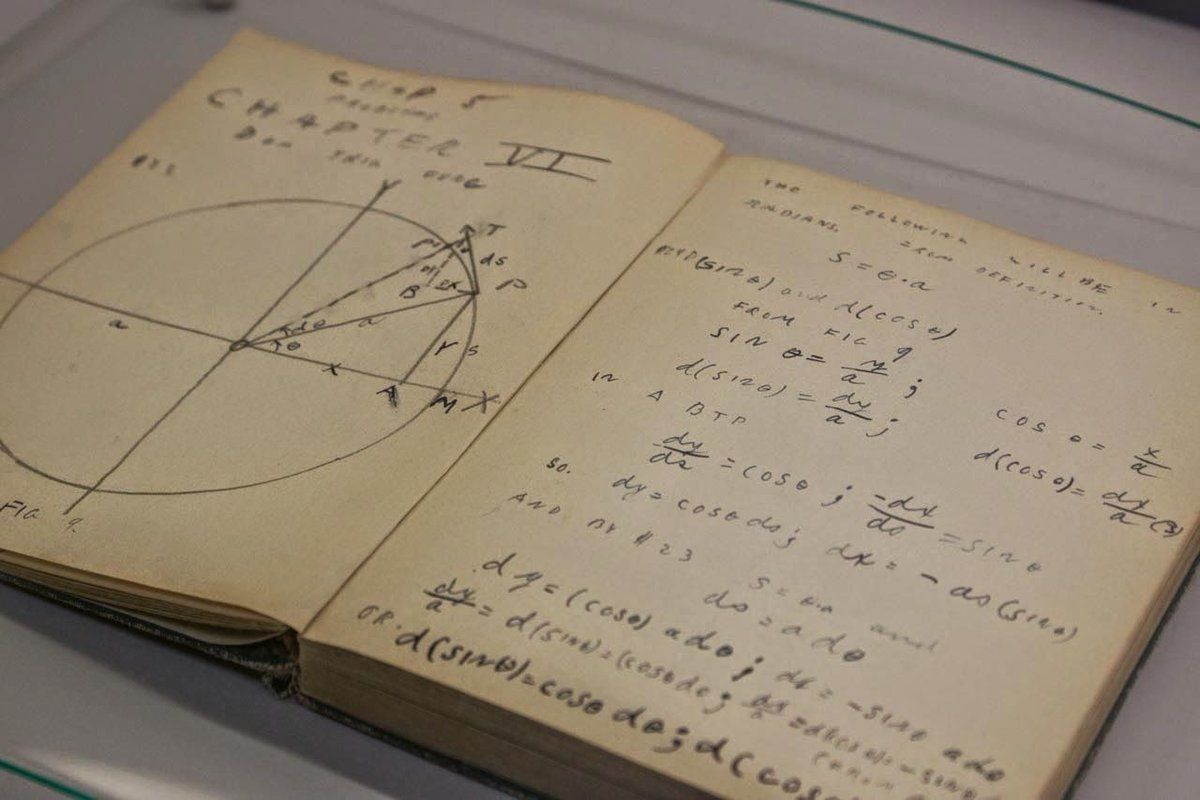 CHAP 5
PROBLEMS
CHAPTER VI
Y
T
P'
ds
P
B
dθ
a
a
θ
Y
S
X
A
M
X
FIG 9.
THE FOLLOWING WILL BE IN
RADIANS. FROM DEFINITION
S = θ·a
(sin θ) and d(cos θ)
FROM FIG 9
SIN θ = y/a ; COS θ = x/a
d(sin θ) = dy/a ; d(cos θ) = dx/a (3)
IN A BTP
dy/ds = cos θ ; -dx/ds = sin θ
SO. dy = cosθ ds ; dx = - ds (sin θ)
AND BY # 23 S = θ·a and
ds = a dθ
dy = (cosθ) a dθ ; dx = -sinθ adθ
dy/a = d(sinθ) = (cosθ)dθ ; dx/a = d(cosθ) = -sinθ
OR. d(sinθ) = cosθ dθ ; d(cos